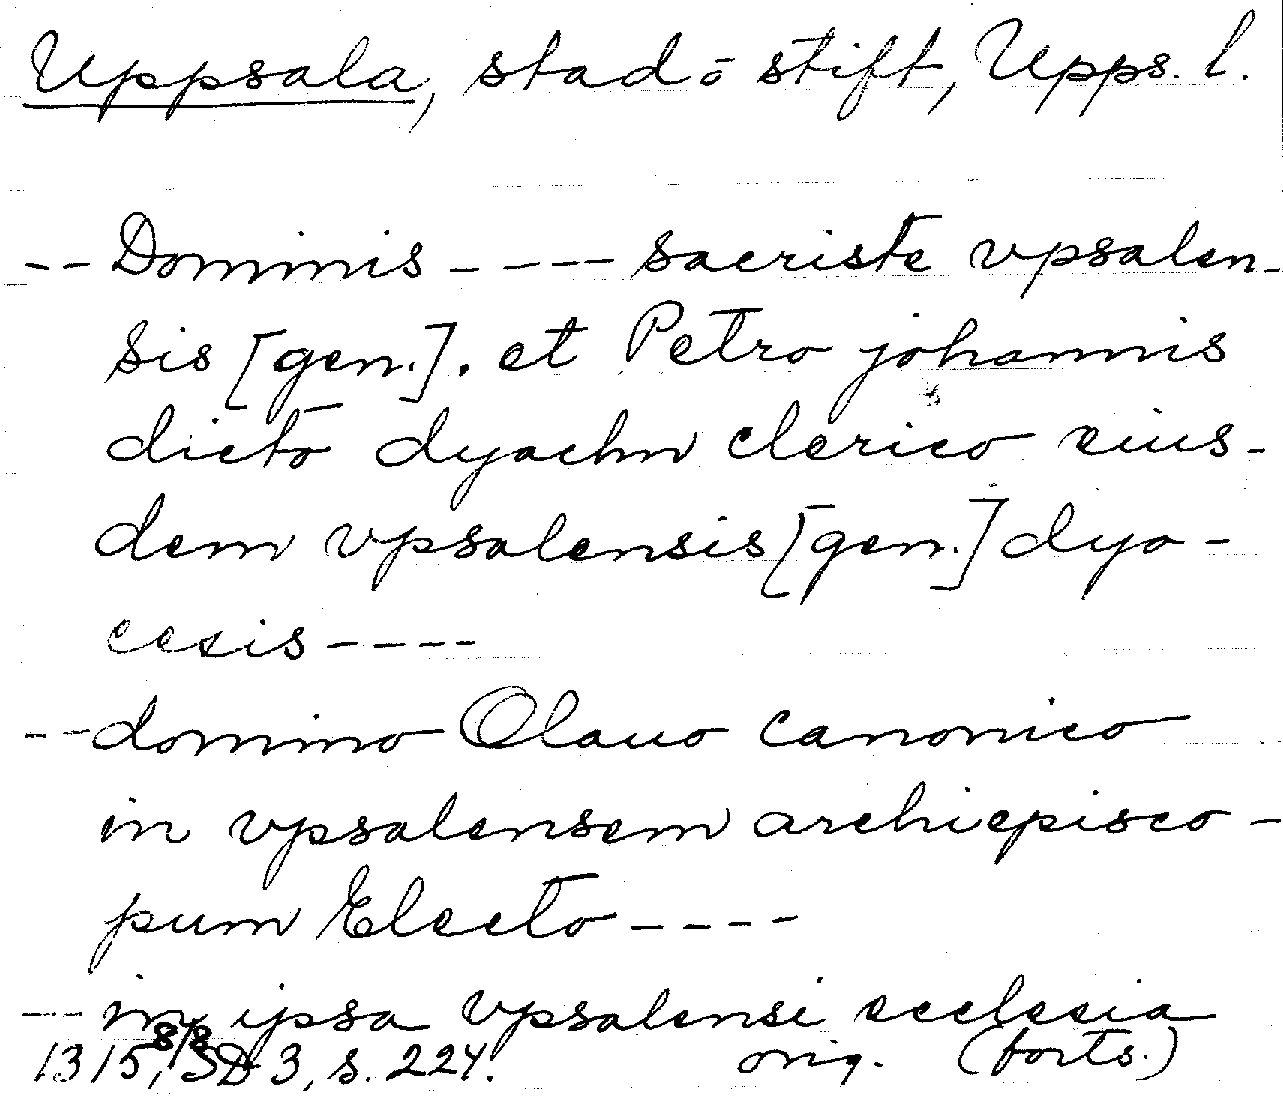 Uppsala, stad o stift, Upps. l.
-- Dominis ---- sacriste vpsalen-
sis [gen.]. et Petro johannis
dicto dyaehn clerico eius-
dem vpsalensis [gen.] dyo-
cesis ----
-- domino Olauo canonico
in vpsalensem archiepisco-
pum Electo ----
-- in ipsa vpsalensi ecclesia
1315, 8/8 SD 3, s. 224. orig. (forts.)